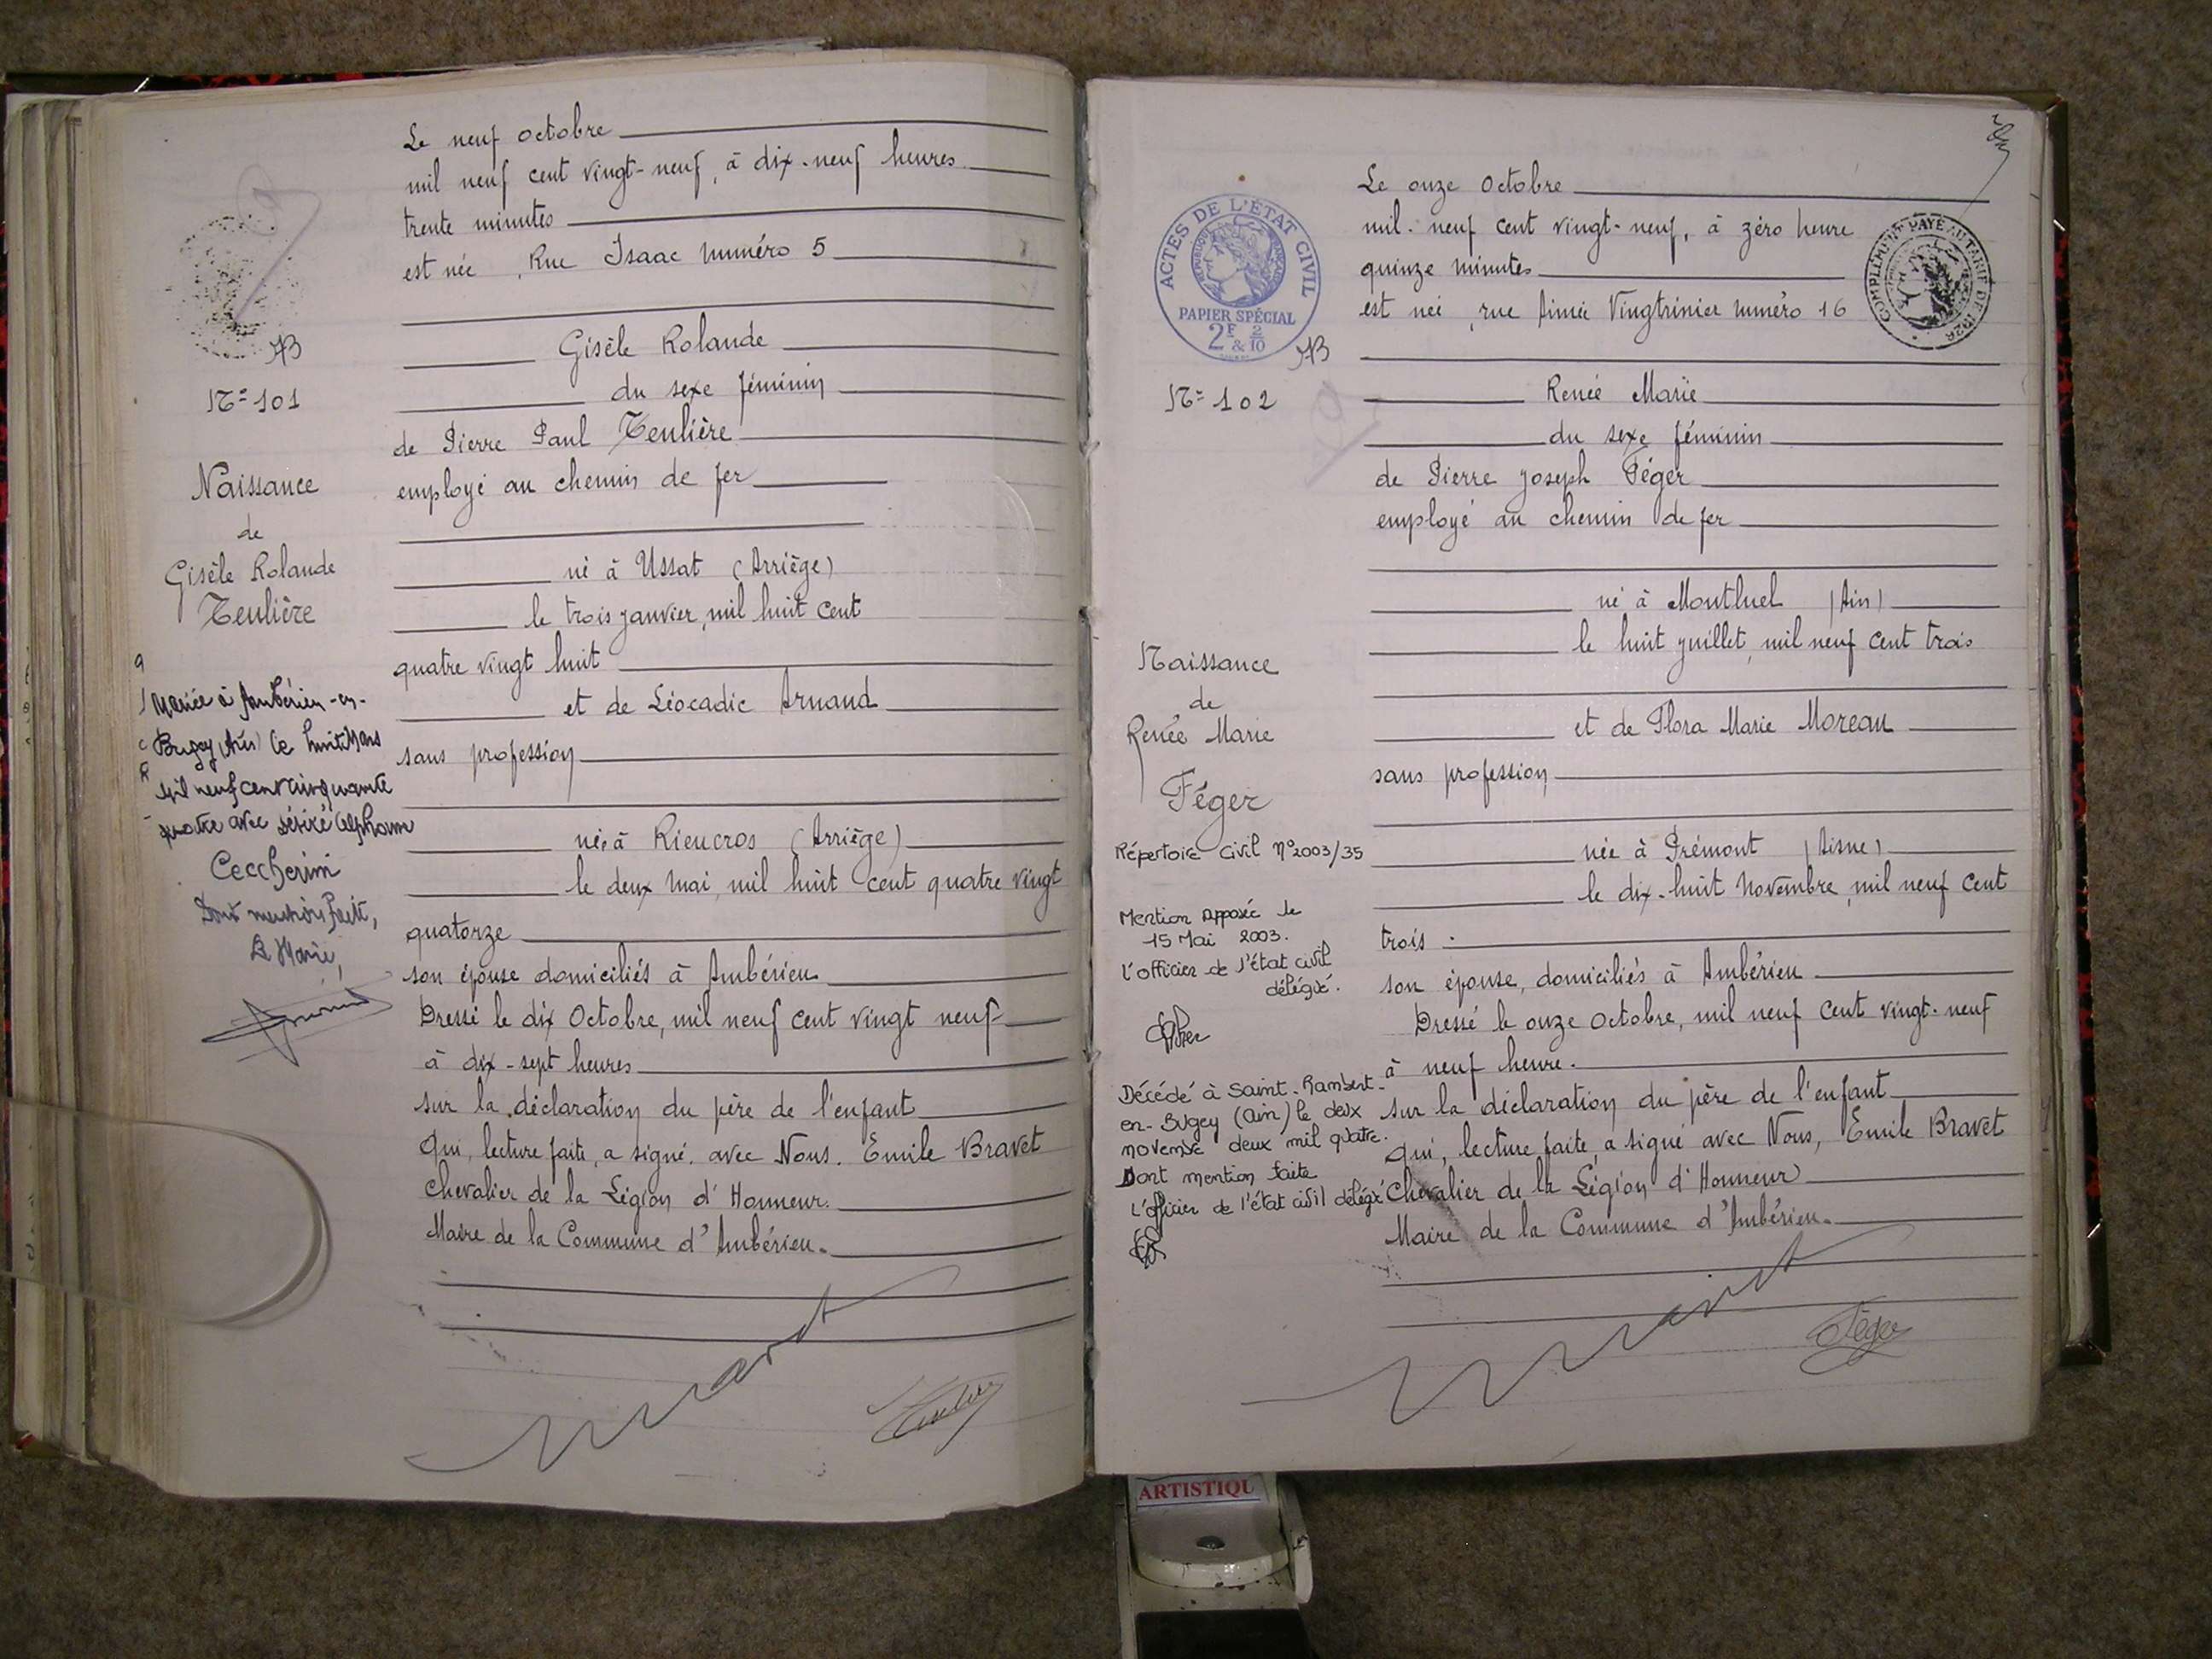 Le neuf octobre
mil neuf cent vingt-neuf, à dix-neuf heures
trente minutes
est née, Rue Isaac numéro 5
Gisèle Rolande
du sexe féminin
de Pierre Paul Teulière
employé au chemin de fer
né à Ussat (Arriège)
le trois janvier, mil huit cent
quatre vingt huit
et de Léocadie Arnaud
sans profession
née à Rieucros (Arriège)
le deux mai, mil huit cent quatre vingt
quatorze
son épouse domiciliés à Ambérieu
Dressé le dix Octobre, mil neuf cent vingt neuf
à dix-sept heures
sur la déclaration du père de l'enfant
Qui, lecture faite, a signé avec Nous. Emile Bravet
Chevalier de la Légion d'Honneur.
Maire de la Commune d'Ambérieu.
AB
N= 101
Naissance
de
Gisèle Rolande
Teulière
Mariée à Ambérieu-en-
Bugey (Ain) le huit Mars
mil neuf cent cinquante
quatre avec Désiré Alphonse
Ceccherini
Dont mention faite,
Le Maire,
Le onze Octobre
mil-neuf cent vingt-neuf, à zéro heure
quinze minutes
est née, rue Aimée Vingtrinier numéro 16
Renée Marie
du sexe féminin
de Pierre Joseph Féger
employé au chemin de fer
né à Montluel (Ain)
le huit juillet, mil neuf cent trois
et de Flora Marie Moreau
sans profession
née à Prémont (Aisne)
le dix-huit Novembre, mil neuf cent
trois.
son épouse, domiciliés à Ambérieu
Dressé le onze Octobre, mil neuf cent vingt-neuf
à neuf heure.
sur la déclaration du père de l'enfant
Qui, lecture faite, a signé avec Nous, Emile Bravet
Chevalier de la Légion d'Honneur
Maire de la Commune d'Ambérieu.
Féger
ACTES DE L'ÉTAT CIVIL
PAPIER SPÉCIAL
2F & 2/10
COMPLÉMENT PAYÉ AU TARIF DE 1926
AB
N= 102
Naissance
de
Renée Marie
Féger
Répertoire Civil N°2003/35
Mention apposée le
15 Mai 2003.
L'officier de l'état civil
délégué.
Décédé à Saint-Rambert-
en-Bugey (Ain) le deux
novembre deux mil quatre.
Dont mention faite
L'officier de l'état civil délégué
ARTISTIQU